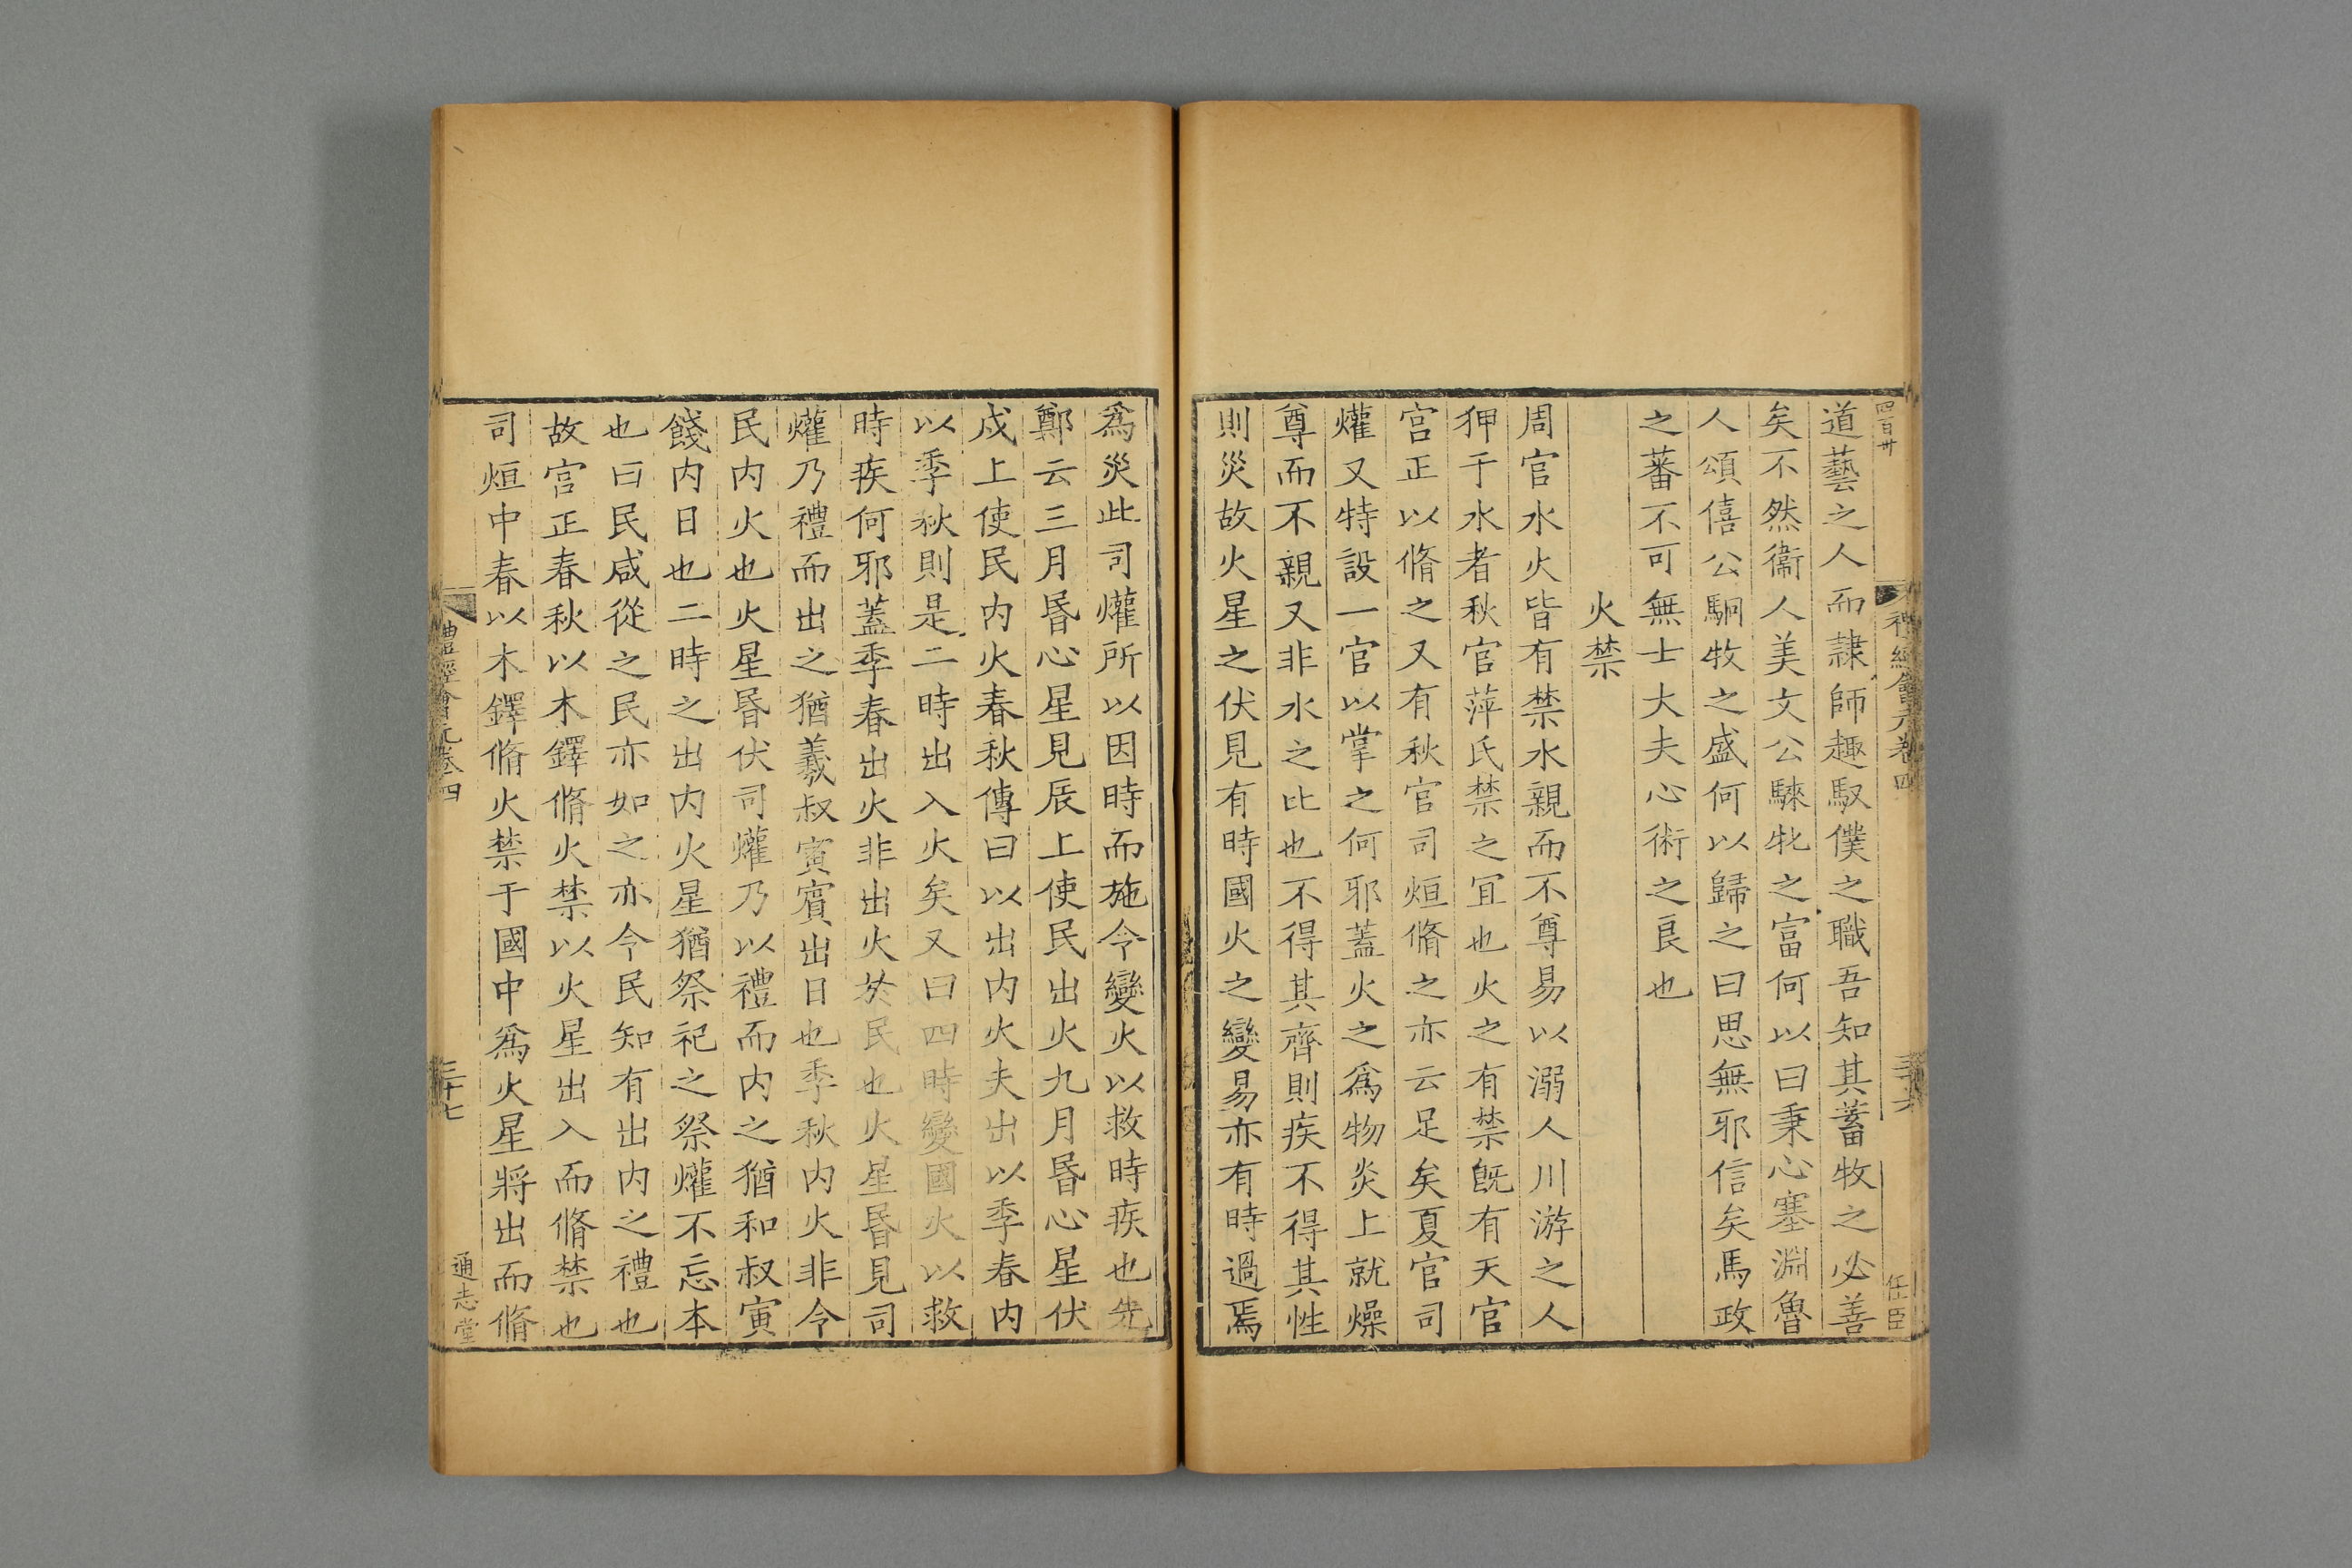 四百卅
禮經會元卷四
三十六
任臣
道藝之人而隷師趣馭僕之職吾知其蓄牧之必善
矣不然衞人美文公騋牝之富何以曰秉心塞淵魯
人頌僖公駉牧之盛何以歸之曰思無邪信矣馬政
之蕃不可無士大夫心術之良也
火禁
周官水火皆有禁水親而不尊易以溺人川游之人
狎于水者秋官萍氏禁之宜也火之有禁旣有天官
宫正以脩之又有秋官司烜脩之亦云足矣夏官司
爟又特設一官以掌之何邪蓋火之爲物炎上就燥
尊而不親又非水之比也不得其齊則疾不得其性
則災故火星之伏見有時國火之變易亦有時過焉
爲災此司爟所以因時而施令變火以救時疾也先
鄭云三月昏心星見辰上使民出火九月昏心星伏
戍上使民内火春秋傳曰以出内火夫出以季春内
以季秋則是二時出入火矣又曰四時變國火以救
時疾何邪蓋季春出火非出火於民也火星昏見司
爟乃禮而出之猶羲叔寅賓出日也季秋内火非令
民内火也火星昏伏司爟乃以禮而内之猶和叔寅
餞内日也二時之出内火星猶祭祀之祭爟不忘本
也曰民咸從之民亦如之亦令民知有出内之禮也
故宫正春秋以木鐸脩火禁以火星出入而脩禁也
司烜中春以木鐸脩火禁于國中爲火星將出而脩
禮經會元卷四
三十七
通志堂